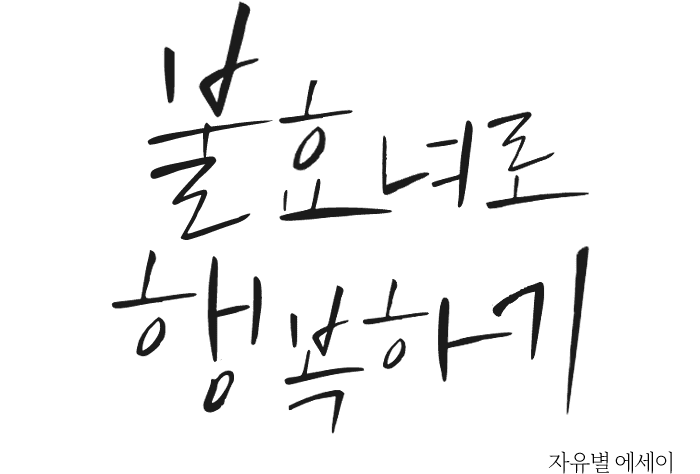 불효녀로
행복하기
자유별 에세이